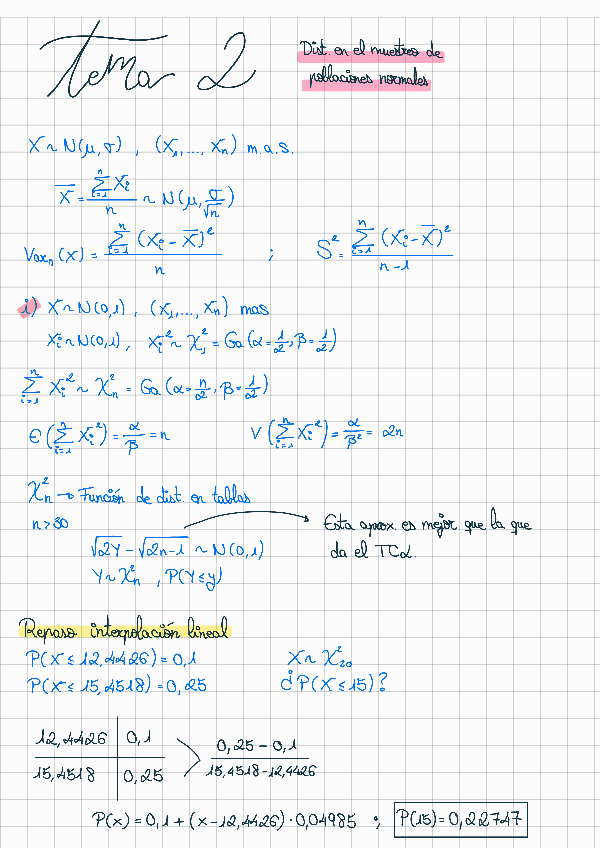 Tema 2
Dist. en el muestreo de
poblaciones normales
X ~ N(μ, σ) , (X₁, ..., Xₙ) m.a.s.
X̄ = ∑ⁿᵢ₌₁ Xᵢ / n ~ N(μ, σ/√n)
Varₙ(X) = ∑ⁿᵢ₌₁ (Xᵢ - X̄)² / n ; S² = ∑ⁿᵢ₌₁ (Xᵢ - X̄)² / n-1
i) X ~ N(0,1) , (X₁, ..., Xₙ) mas
Xᵢ ~ N(0,1) , Xᵢ² ~ χ²₁ = Ga(α = 1/2, β = 1/2)
∑ⁿᵢ₌₁ Xᵢ² ~ χ²ₙ = Ga(α = n/2, β = 1/2)
E(∑ⁿᵢ₌₁ Xᵢ²) = α/β = n V(∑ⁿᵢ₌₁ Xᵢ²) = α/β² = 2n
χ²ₙ → Función de dist. en tablas
n > 30
√2Y - √2n-1 ~ N(0,1)
Y ~ χ²ₙ , P(Y ≤ y)
Esta aprox. es mejor que la que
da el TCL.
Repaso interpolación lineal
P(X ≤ 12,4426) = 0,1 X ~ χ²₂₀
P(X ≤ 15,4518) = 0,25 ¿P(X ≤ 15)?
12,4426 | 0,1
15,4518 | 0,25
0,25 - 0,1 / 15,4518 - 12,4426
P(x) = 0,1 + (x - 12,4426) · 0,04985 ; P(15) = 0,22747